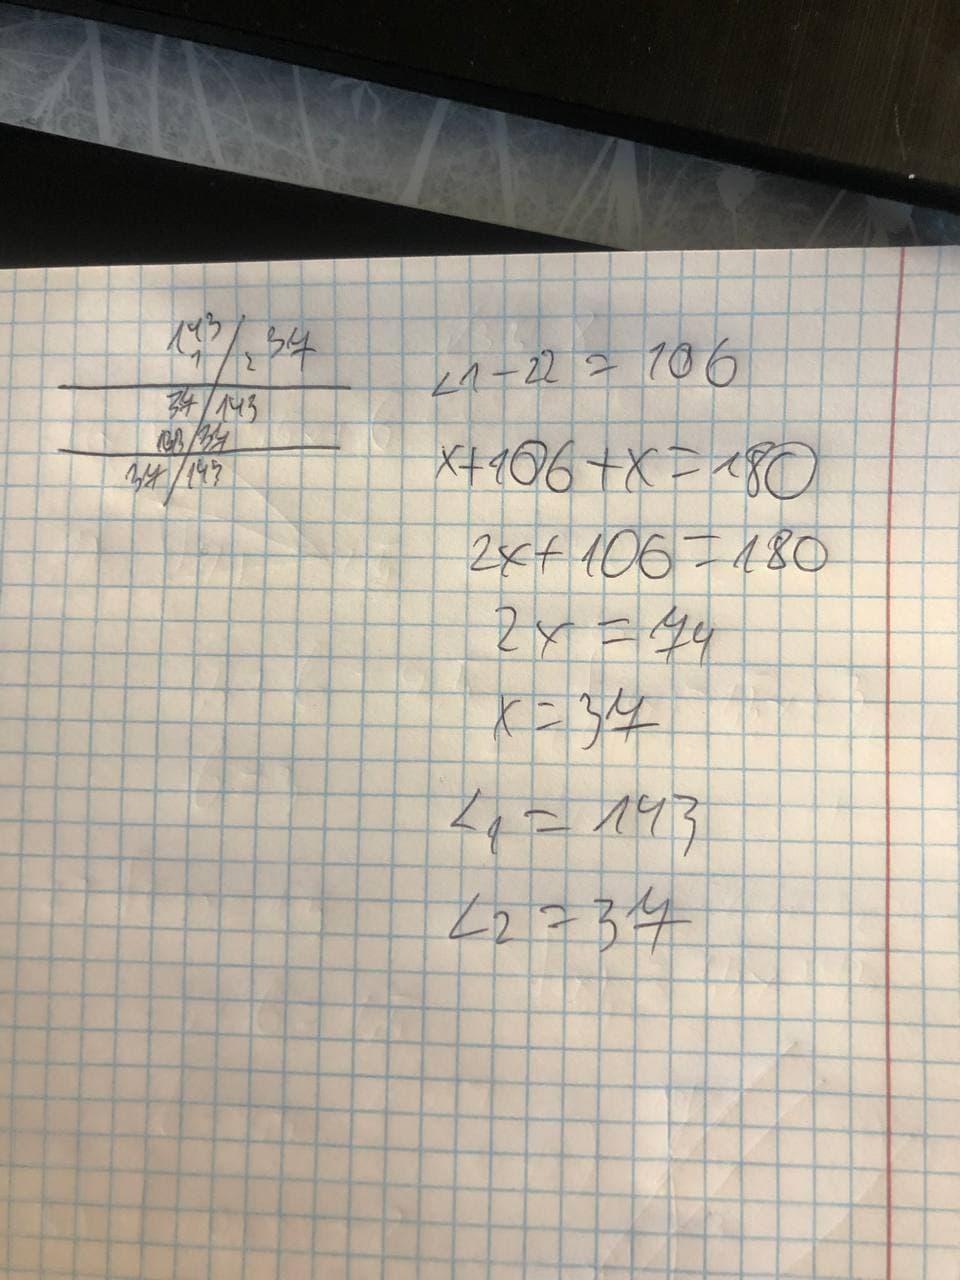 143 / 37
1 2
37 / 143
143 / 37
37 / 143
∠1 - ∠2 = 106
x + 106 + x = 180
2x + 106 = 180
2x = 74
x = 37
∠1 = 143
∠2 = 37